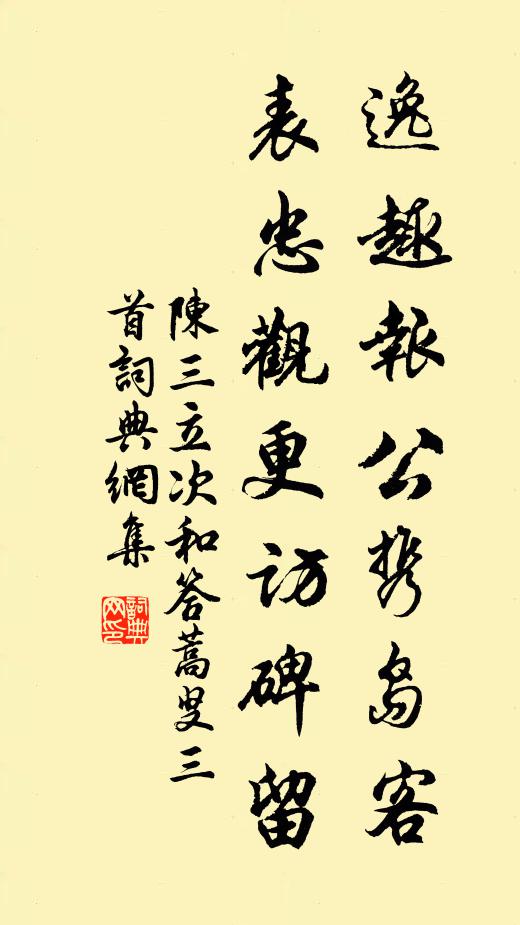 逸趣報公携島客
表忠觀更訪碑留
陳三立次和答蒿叟三
首詞典網集
詞典
网印